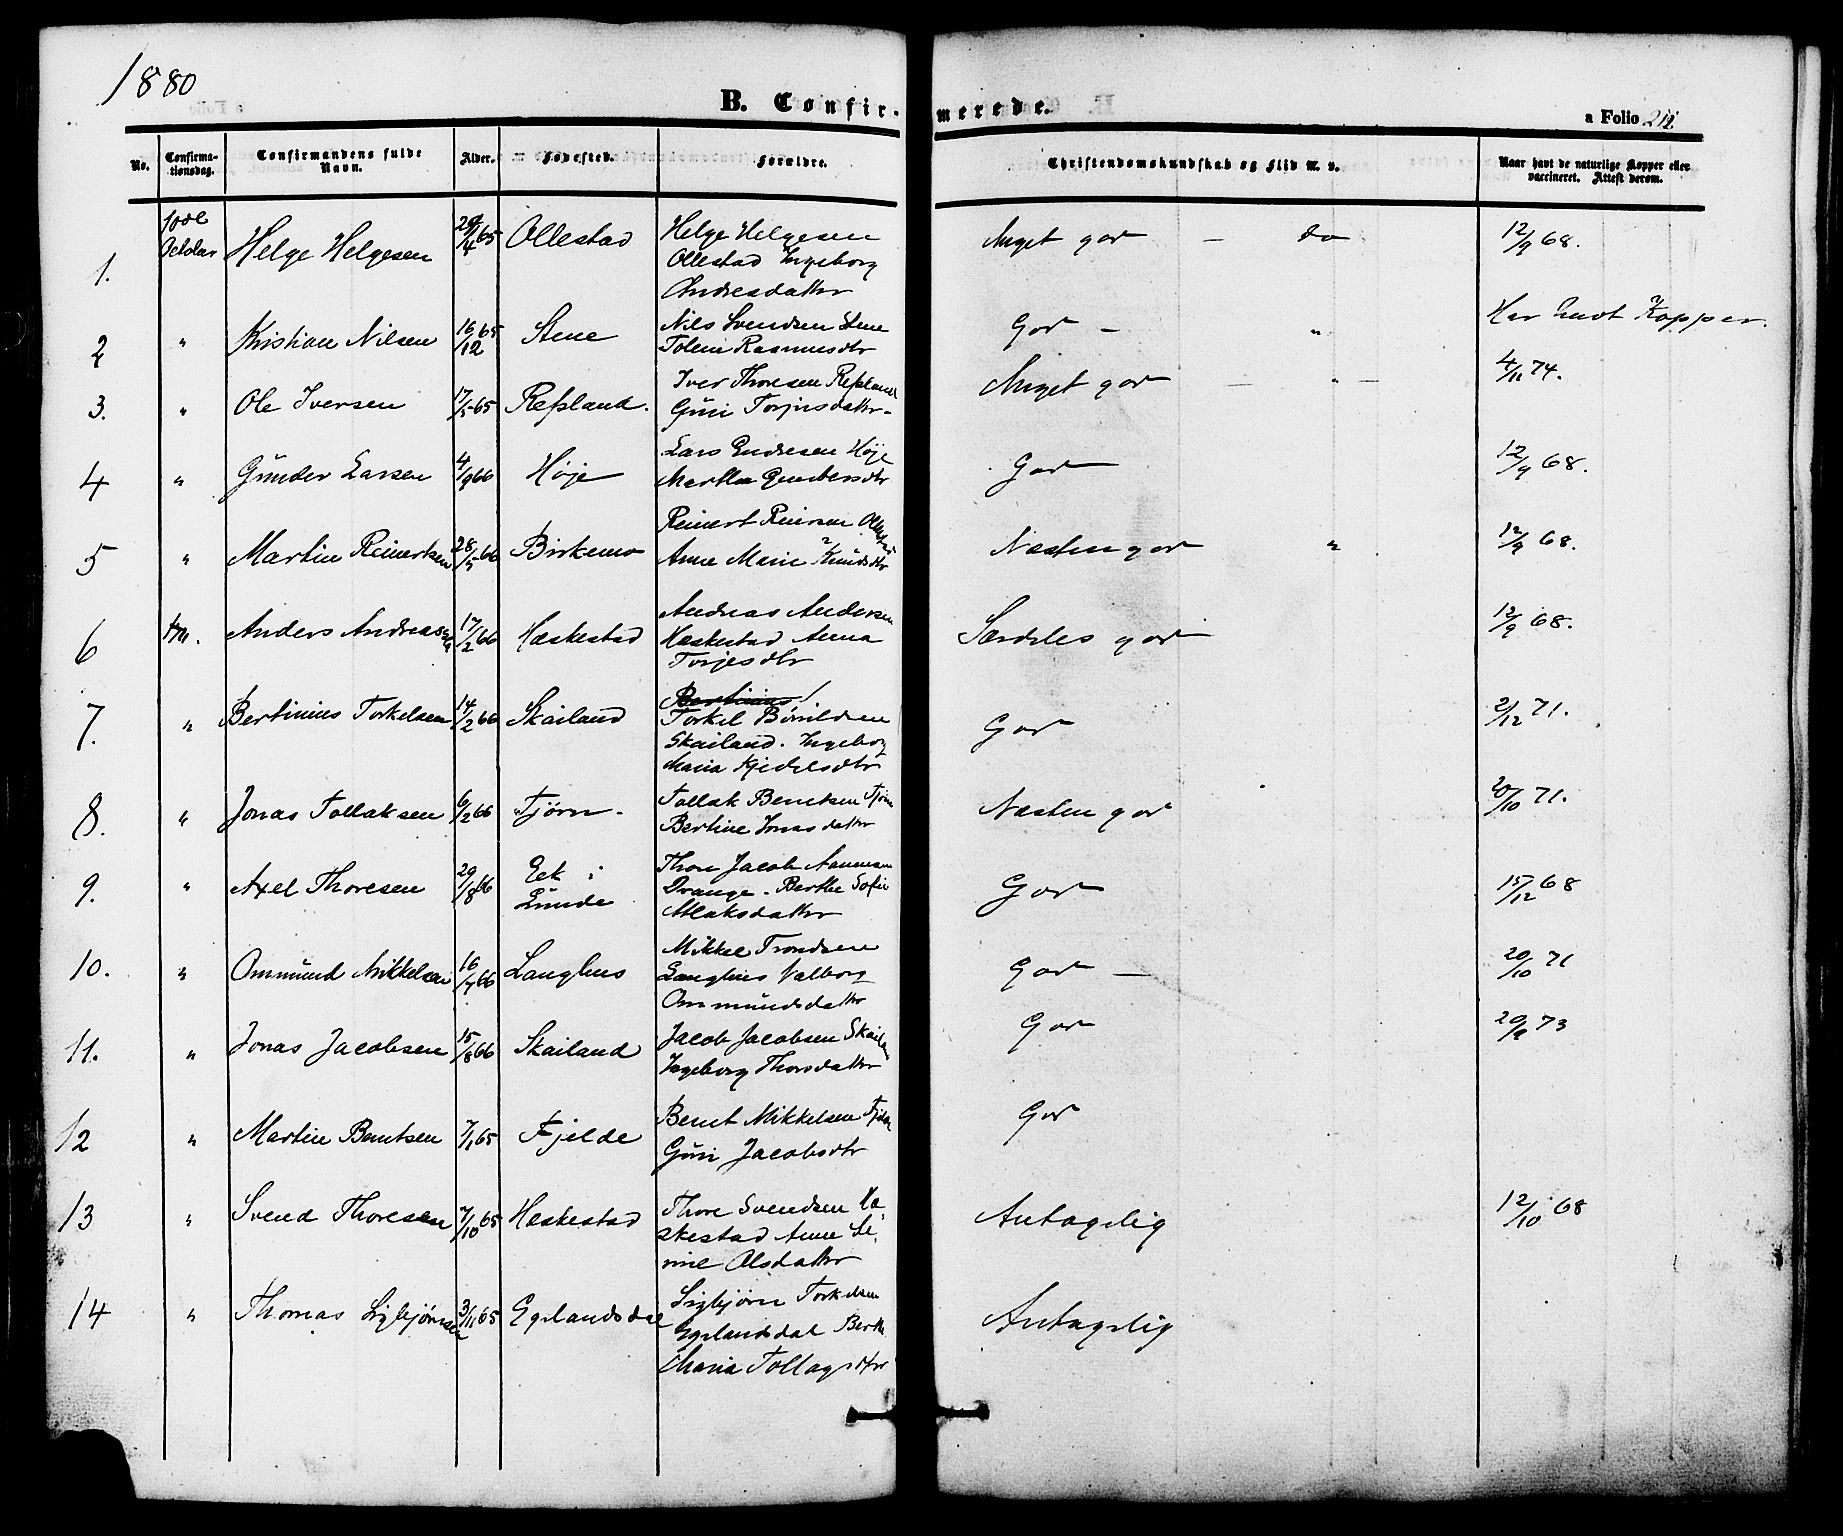 1880
B. Confirmerede.
a Folio 211.
No. Confirmationsdag. Confirmandens fulde Navn. Alder. Fødested. Forældre. Christendomskundskab og Flid M. v. Naar havt de naturlige Kopper eller vaccineret. Attest derom.
1. Helge Helgesen 29/4 65 Ollestad Helge Helgesen Meget god – do 12/9 68.
Ollestad Ingeborg
Andreasdatter
2 " Kristian Nilsen 16/12 65 Stene Nils Svendsen Stene God – " Har havt Kopper.
Tolene Rasmusdtr
3. " Ole Iversen 17/5 65 Refsland. Iver Thoresen Refsland Meget god – " – 4/11 74.
Guri Torjusdatter
4 " Gunder Larsen 4/9 66 Høje Lars Endresen Høje God 12/9 68.
Martha Gundersdtr
5 " Martin Reinertsen 28/5 66 Birkemo Reinert Reiersen Næsten god " 12/9 68.
Anne Marie Knudsdtr
6 Anders Andreasen 17/2 66 Hæskestad Andreas Andersen Særdeles god 12/9 68.
Hæskestad Anna
Torjesdtr
7. " Bertinius Torkelsen 14/2 66 Skailand Bertinius God 2/12 71.
Torkel Bøvildsen
Skailand. Ingeborg
Maria Kjedelsdtr
8. " Jonas Tollaksen 6/2 66 Tjørn. Tollak Bentsen Tjørn Næsten god 20/10 71.
Bertine Jonasdatter
9. " Axel Thoresen 29/8 66 Eek i Lunde Thore Jacob Aanensen God 15/12 68
Drange. Berthe Sofie
Atlaksdatter
10. " Ommund Mikkelsen 16/7 66 Langhus Mikkel Trondsen God – 20/10 71
Langhus Valborg
Ommundsdatter
11. " Jonas Jacobsen 15/8 66 Skailand Jacob Jacobsen Skailand God 20/9 73
Ingeborg Thorsdatter
12 " Martin Bentsen 7/1 65 Fjelde Bent Mikkelsen Fjelde God
Guri Jacobsdtr
13 " Svend Thoresen 7/10 65 Hæskestad Thore Svendsen Hæ- Antagelig 12/10 68
skestad Anne Se-
rine Olsdatter
14 " Thomas Sigbjørnsen 3/11 65 Egelandsdal Sigbjørn Torkelsen Antagelig
Egelandsdal Berthe
Maria Tollagsdtr